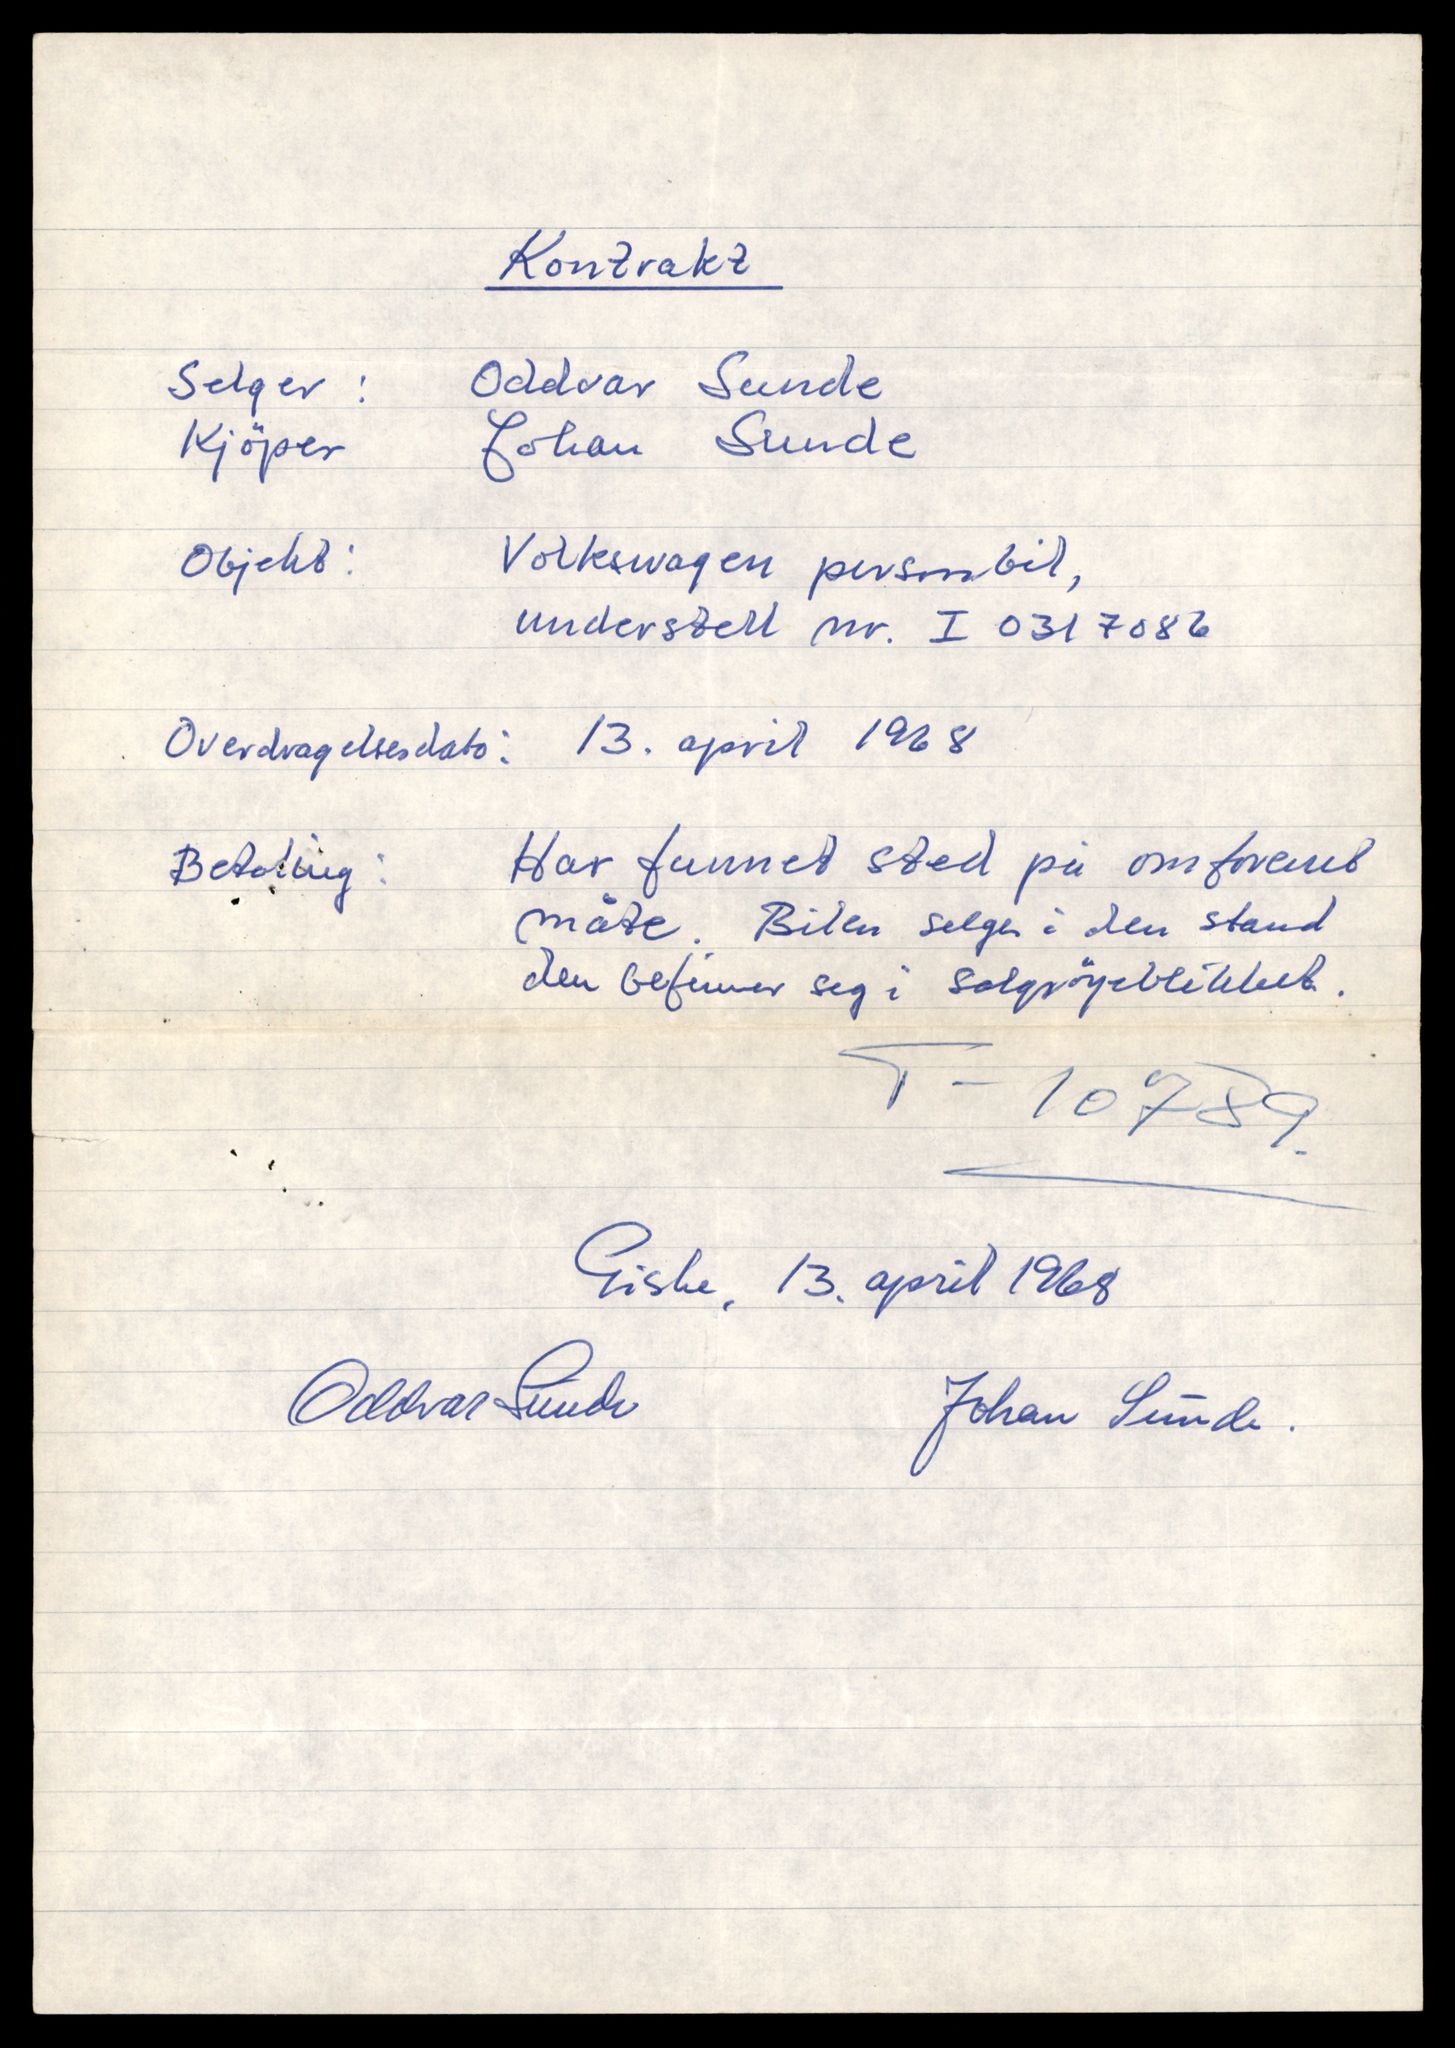 Kontrakt
Selger: Oddvar Sunde
Kjöper Johan Sunde
Objekt: Volkswagen personbil,
understell nr. I 0317086
Overdragelsesdato: 13. april 1968
Betaling: Har funnet sted på omforent
måte. Bilen selges i den stand
den befinner seg i salgsöyeblikket.
T-10789.
Giske, 13. april 1968
Oddvar Sunde Johan Sunde.